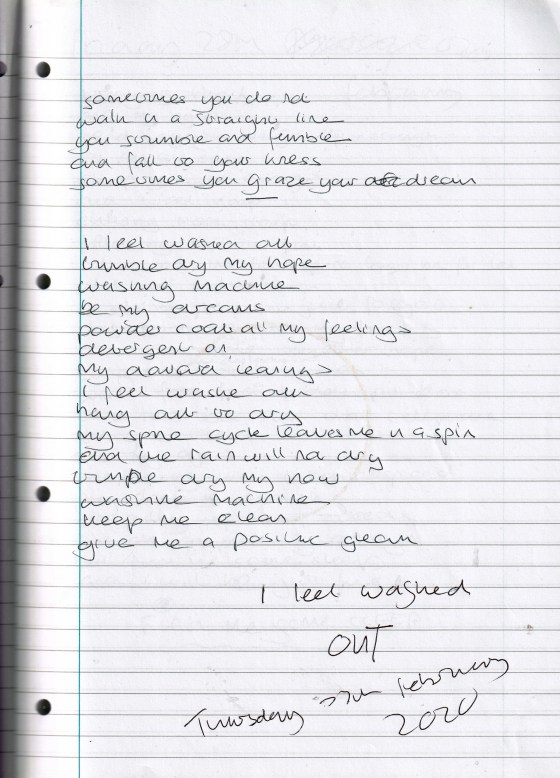 sometimes you do not
walk in a straight line
you stumble and fumble
and fall to your kness
sometimes you graze your dream
I feel washed out
tumble dry my hope
washing machine
be my dreams
powder coat all my feelings
detergent on
my
I feel washe out
hang out to dry
my spne cycle leaves me in a spin
and the rain will not dry
tumple dry my now
washine machine
keep me clean
give me a positive gleam
I feel washed
OUT
Thursday 27th february
2020